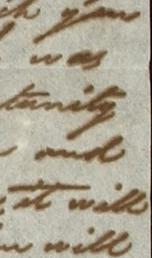 you
was
tunity
and
it will
will